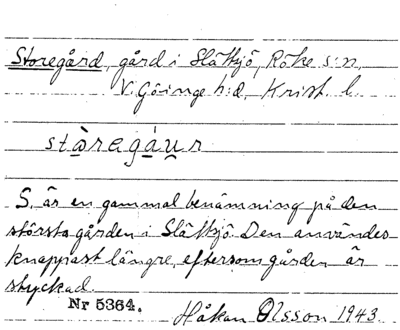 Storegård, gård i Slätkjö, Röke s:n,
V. Göinge h:d, Krist. l.
stàregáu̯r
S. är en gammal benämning på den
största gården i Slätkjö. Den användes
knappast längre, eftersom gården är
styckad.
Nr 5364.
Håkan Olsson 1943